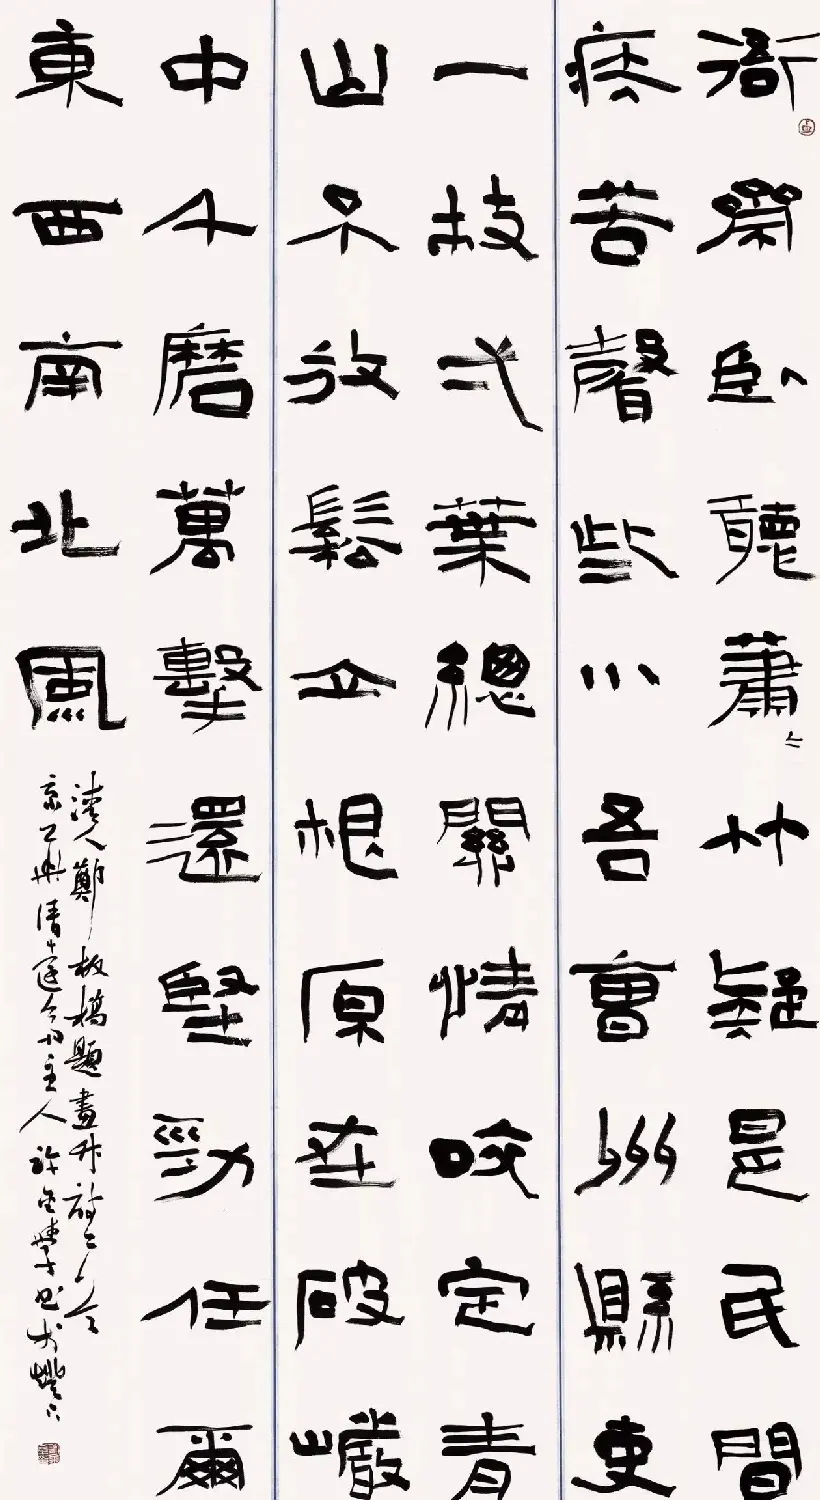 衙齋卧聽蕭〻竹疑是民間
疾苦聲些小吾曹州縣吏
一枝弌葉總關情咬定青
山不放鬆立根原在破巖
中千磨萬擊還堅勁任爾
東西南北風
清人鄭板橋題畫竹詩二首
主人許